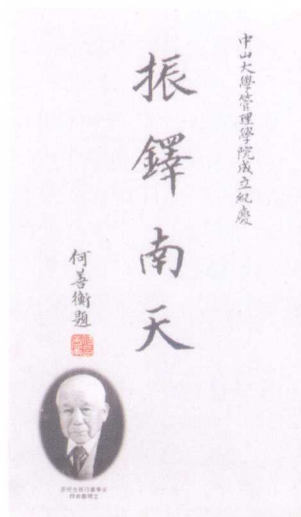 中山大學管理學院成立紀慶
振鐸南天
何善衡題